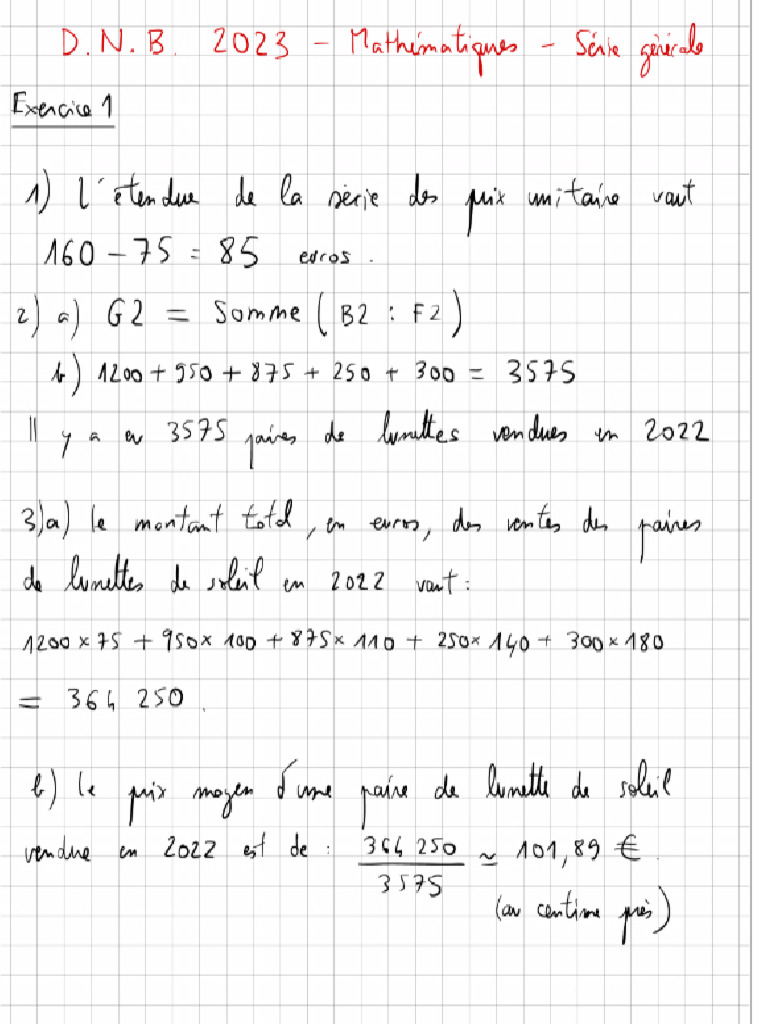 D.N.B. 2023 - Mathématiques - Série générale
Exercice 1
1) L'étendue de la série des prix unitaire vaut
160 - 75 = 85 euros.
2) a) G2 = Somme (B2 : F2)
b) 1200 + 950 + 875 + 250 + 300 = 3575
Il y a eu 3575 paires de lunettes vendues en 2022
3) a) le montant total, en euros, des ventes des paires
de lunettes de soleil en 2022 vaut :
1200 × 75 + 950 × 100 + 875 × 110 + 250 × 140 + 300 × 180
= 364 250.
b) le prix moyen d'une paire de lunette de soleil
vendue en 2022 est de : 364 250 / 3575 ≃ 101,89 €.
(au centime près)